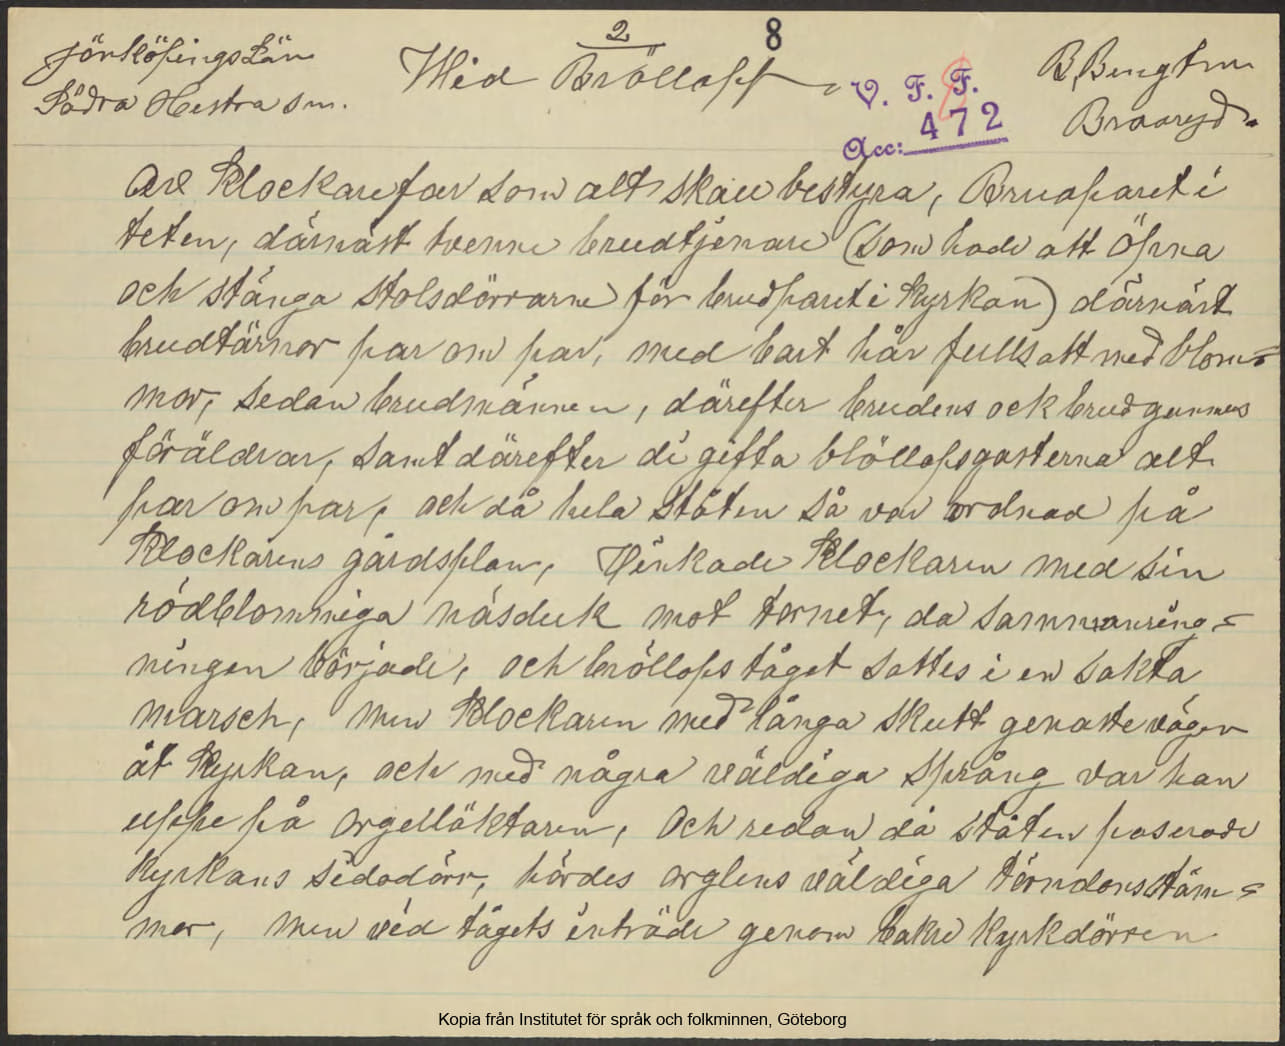 Jönköpings Län
Södra Hestra sn.
2
8
Wid Bröllop
V. F. F.
Acc: 472
B, Bengtson
Braaryd.
av Klockarefar som alt skall bestyra, Brudparet i
teten, därnäst tvenne brudtjenare (som hade att öpna
och stänga stolsdörrarne för brudparet i Kyrkan) därnäst
brudtärnor par om par, med bart hår fullsatt med blom=
mor, sedan brudmännen, därefter brudens ock brudgummens
föräldrar, samt därefter di gifta blöllopsgasterna alt
par om par, och då hela ståten så var ordnad på
Klockarens gårdsplan, Vinkade Klockaren med sin
rödblommiga näsduk mot tornet, da sammanring=
ningen började, och bröllops tåget sattes i en sakta
marsch, men Klockaren med långa skutt genaste vägen
åt Kyrkan, och med några väldiga språng var han
uppe på orgelläktaren, och redan då ståten paserade
Kyrkans sidodörr, hördes orglens väldiga tordönsstäm=
mor, men vid tågets inträde genom bakre Kyrkdörren
Kopia från Institutet för språk och folkminnen, Göteborg